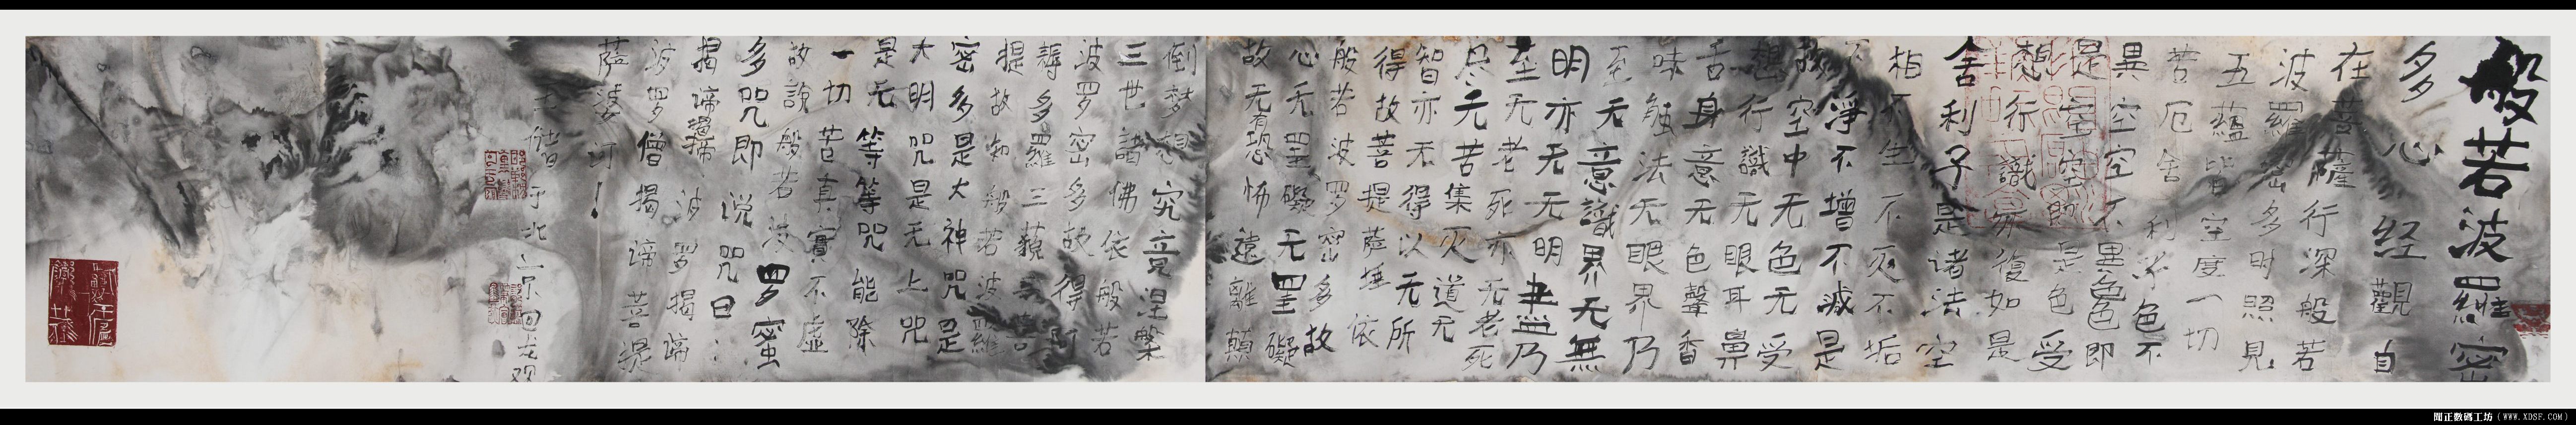 般若波羅密
多心经觀自
在菩薩行深般若
波羅密多时照見
五蘊皆空度一切
苦厄舍利子色不
異空空不異色色即
是空空即是色受
想行識亦復如是
舍利子是诸法空
相不生不灭不垢
不淨不增不减是
故空中无色无受
想行識无眼耳鼻
舌身意无色聲香
味触法无眼界乃
至无意識界无無
明亦无无明
至无老死亦尽乃
尽无苦集灭道无
智亦无得以无所
得故菩提萨埵依
般若波罗密多故
心无罣礙无罣礙故
故无有恐怖遠離顛
倒梦想究竟涅槃
三世諸佛依般若
波罗密多故得阿
耨多羅三藐三菩
提故知般若波羅
密多是大神咒是
大明咒是无上咒
是无等等咒能除
一切苦真實不虚
故說般若波罗蜜
多咒即说咒曰：
揭谛揭谛波罗揭谛
波罗僧揭谛菩提
薩婆诃！
于北京回龙观
聞正數碼工坊（WWW.XDSF.COM）